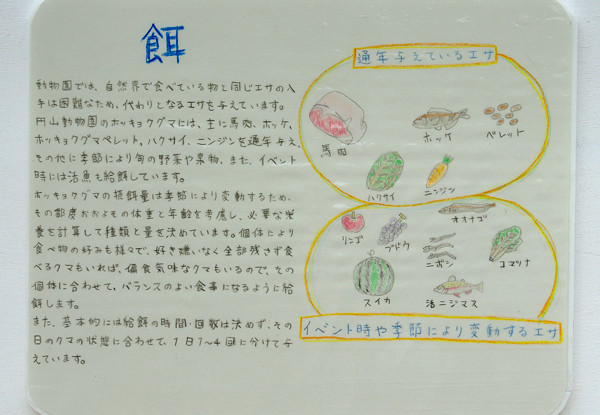 餌
動物園では、自然界で食べている物と同じエサの入
手は困難なため、代わりとなるエサを与えています。
円山動物園のホッキョクグマには、主に馬肉、ホッケ、
ホッキョクグマペレット、ハクサイ、ニンジンを通年与え、
その他に季節により旬の野菜や果物、また、イベント
時には活魚も給餌しています。
ホッキョクグマの採餌量は季節により変動するため、
その都度おおよその体重と年齢を考慮し、必要な栄養
を計算して種類と量を決めています。個体により
食べ物の好みも様々で、好き嫌いなく全部残さず食
べるクマもいれば、偏食気味なクマもいるので、その
個体に合わせて、バランスのよい食事になるように給
餌します。
また、基本的には給餌の時間・回数は決めず、その
日のクマの状態に合わせて、1日1〜4回に分けて与
えています。
通年与えているエサ
馬肉
ホッケ
ペレット
ハクサイ
ニンジン
オオナゴ
リンゴ
ブドウ
ニボシ
コマツナ
スイカ
活ニジマス
イベント時や季節により変動するエサ